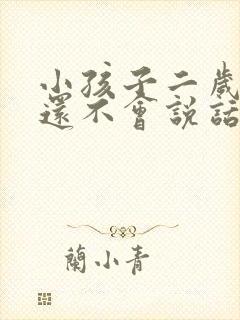 小孩子二歲
還不會説話
蘭小青